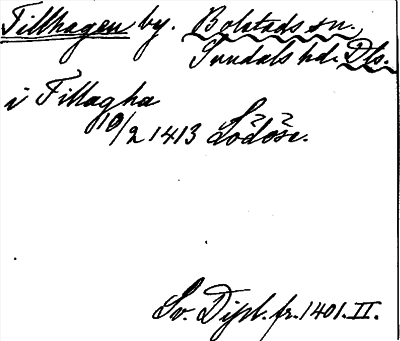 Tillhagen by. Bolstads sn.,
Sundals hd. Dls.
i Tillagha
10/2 1413 Lödöse.
Sv. Dipl. fr. 1401. II.